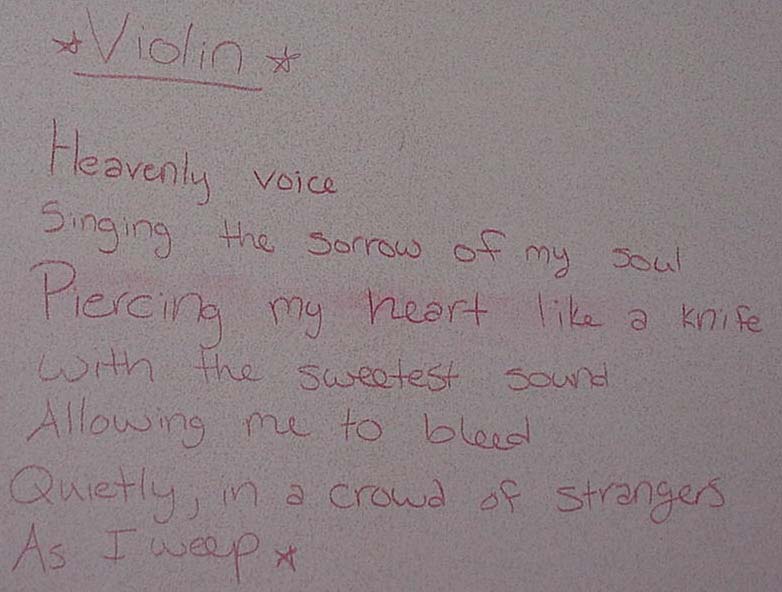 *Violin*
Heavenly voice
Singing the sorrow of my soul
Piercing my heart like a knife
with the sweetest sound
Allowing me to bleed
Quietly, in a crowd of strangers
As I weep*